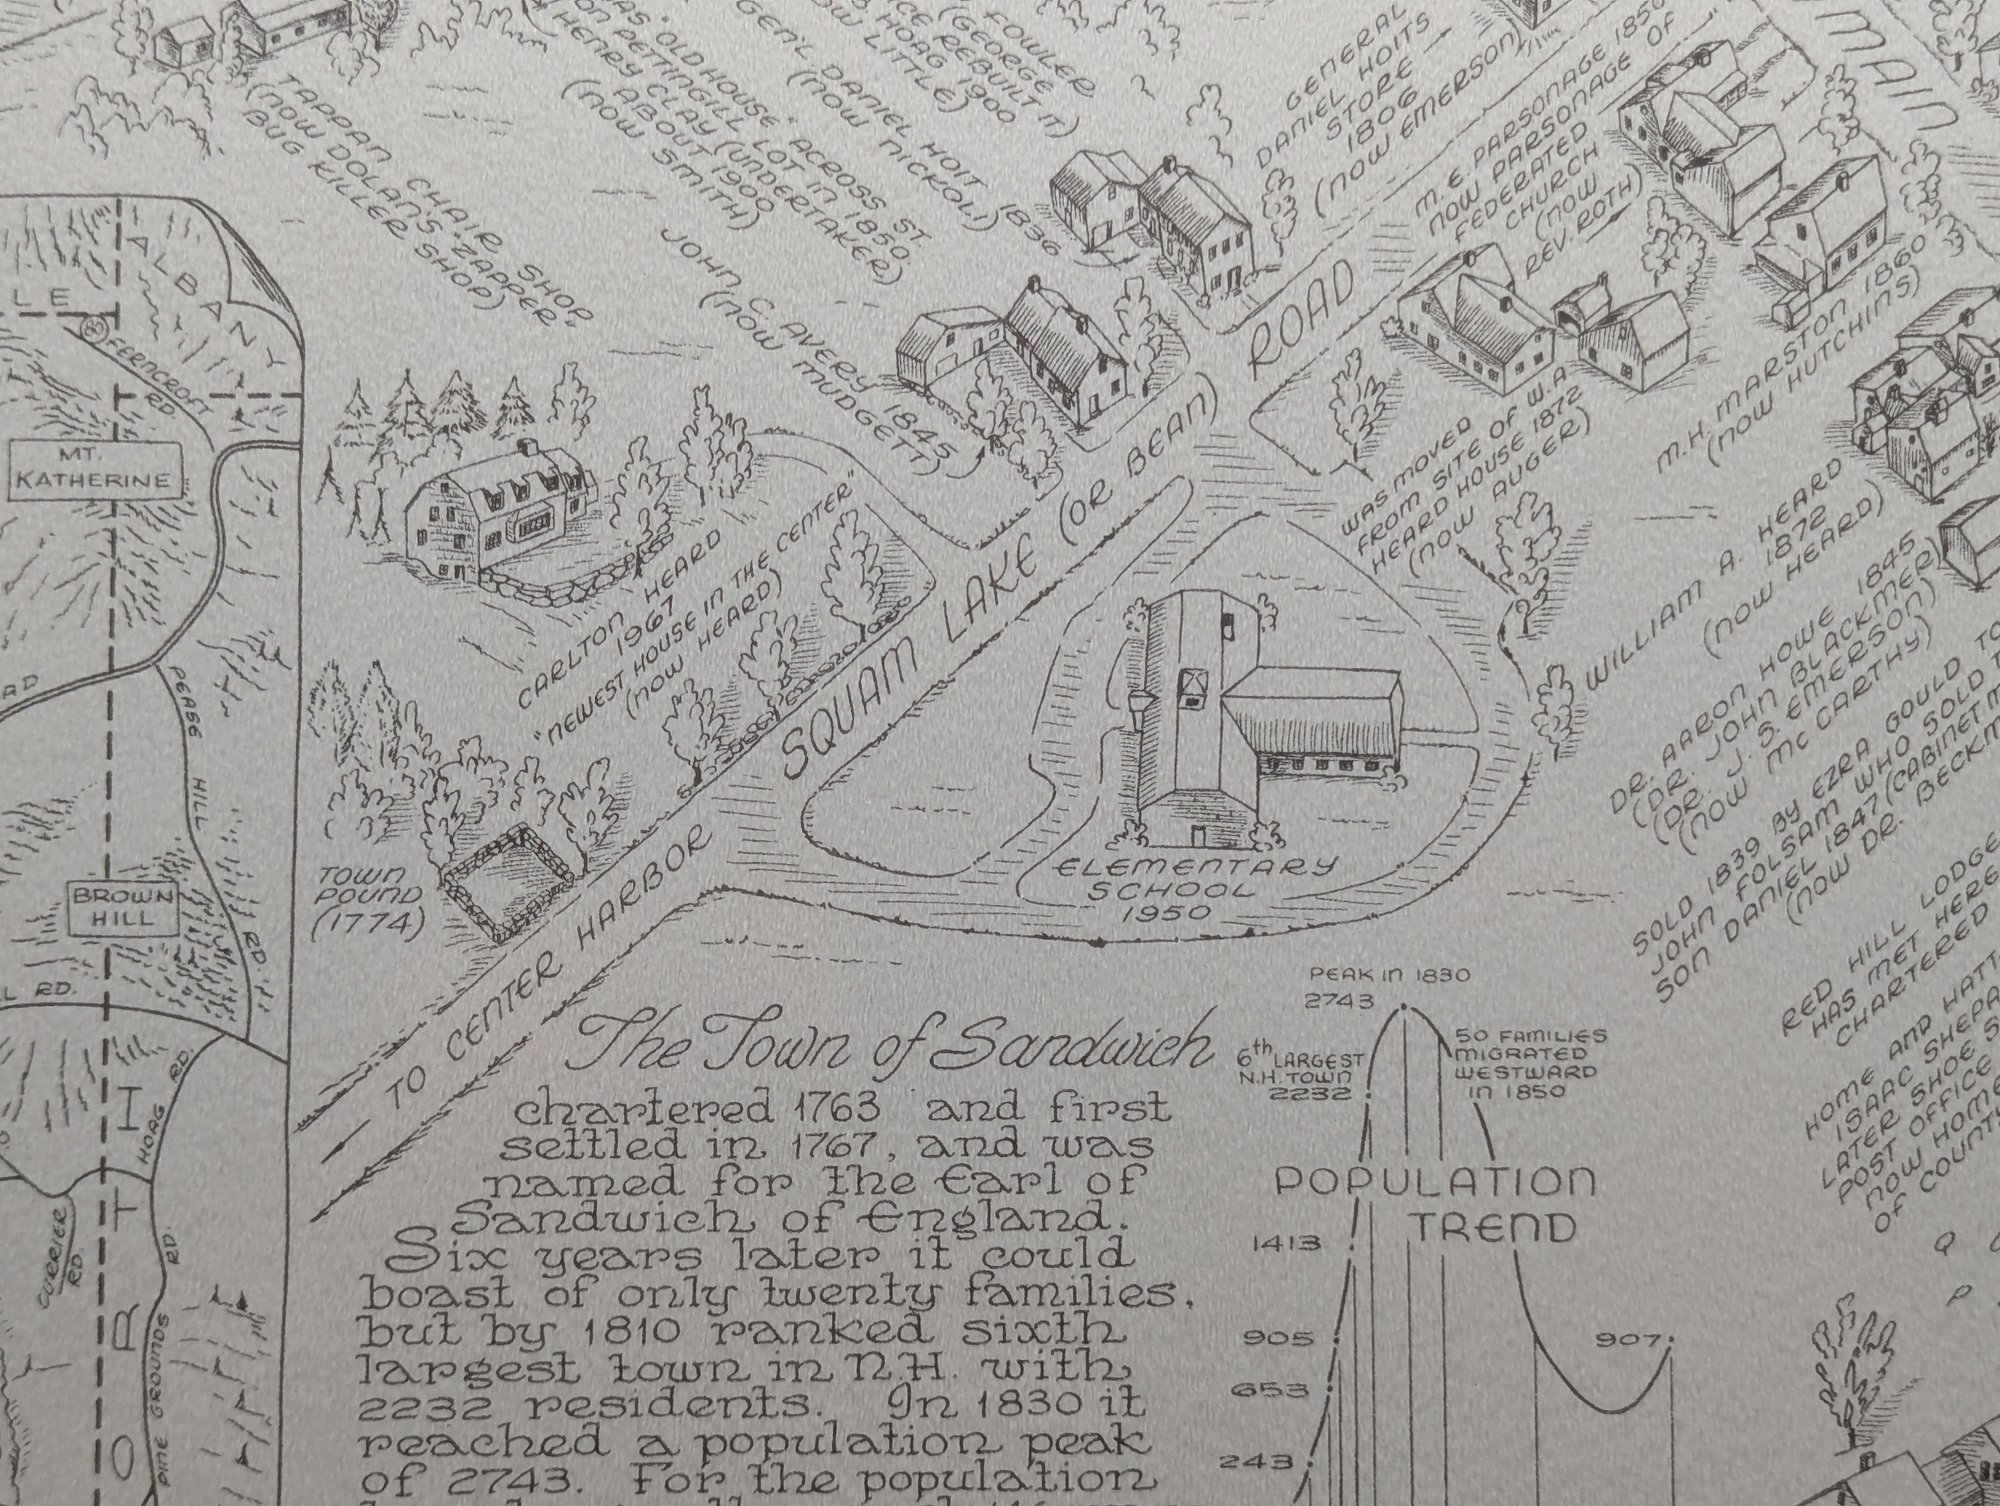 TAPPAN CHAIR SHOP
(NOW DOLAN'S "ZAPPER"
BUG KILLER SHOP)
"OLD HOUSE" ACROSS ST.
ON PETTINGILL LOT IN 1850
HENRY CLAY (UNDERTAKER)
ABOUT 1900
(NOW SMITH)
GEN'L DANIEL HOIT 1836
(NOW NICKOL)
FOWLER
(GEORGE
HOAG REBUILT IT)
1900
NOW LITTLE)
JOHN C. AVERY 1845
(NOW MUDGETT)
GENERAL
DANIEL HOITS
STORE
1806
(NOW EMERSON)
M. E. PARSONAGE 1850
NOW PARSONAGE OF
FEDERATED
CHURCH
(NOW
REV. ROTH)
MAIN
M.H. MARSTON 1860
(NOW HUTCHINS)
WAS MOVED
FROM SITE OF W.A.
HEARD HOUSE 1872
(NOW AUGER)
WILLIAM A. HEARD
1872
(NOW HEARD)
DR. AARON HOWE 1845
(DR. JOHN BLACKMER)
(DR. J. S. EMERSON)
(NOW MC CARTHY)
SOLD 1839 BY EZRA GOULD TO
JOHN FOLSAM WHO SOLD
SON DANIEL 1847 (CABINET
(NOW DR. BECKM
RED HILL LODGE
HAS MET HERE
CHARTERED
HOME AND HATT
ISAAC SHEPA
LATER SHOE S
POST OFFICE
NOW HOME
OF COUNTY
SQUAM LAKE (OR BEAN) ROAD
CARLTON HEARD
1967
"NEWEST HOUSE IN THE CENTER"
(NOW HEARD)
TOWN
POUND
(1774)
TO CENTER HARBOR
ELEMENTARY
SCHOOL
1950
ALBANY
LE
FERNCROFT
RD
MT.
KATHERINE
AD
PEASE HILL RD.
BROWN
HILL
L RD.
HOAG RD.
CURRIER
RD.
PINE GROUNDS RD.
ORTH
The Town of Sandwich
chartered 1763 and first
settled in 1767, and was
named for the Earl of
Sandwich of England.
Six years later it could
boast of only twenty families,
but by 1810 ranked sixth
largest town in N.H. with
2232 residents. In 1830 it
reached a population peak
of 2743. For the population
PEAK IN 1830
2743
6th LARGEST
N.H. TOWN
2232
50 FAMILIES
MIGRATED
WESTWARD
IN 1850
POPULATION
TREND
1413
905
907
653
243